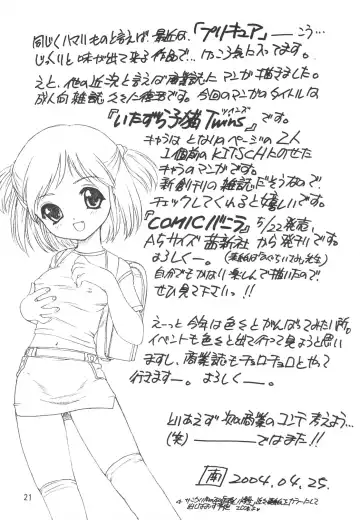 同じくハマりものと言えば、最近は、「プリキュア」── こう…
じっくりと味が出て来る作品で…、けっこう気に入ってます。
えと、他の近況と言えば商業誌にマンガ描きました。
成人向雑誌
今回のマンガのタイトルは
『いたずら子猫Twins』です。
ツインズ
キャラは となりのページの2人
1個前のKITSCHにのせた
キャラのマンガです。
新創刊の雑誌だそうなので
チェックしてくれると嬉しいです。
『COMICバニラ』 5/22発売、
A5サイズ 茜新社 から発刊です。
よろしくー。
自分でもかなり楽しんで描いたので
ぜひ見て下さいっ!!
えーっと 今年は色々とがんばってみたい所。
イベントも色々と出て行って見ようと思い
ますし、商業誌もチョロチョロとやって
行けますー。 よろしくー。
とりあえず 次の商業のコンテ考えよう…
(笑) ── ではまた!!
南 2004.04.25.
21